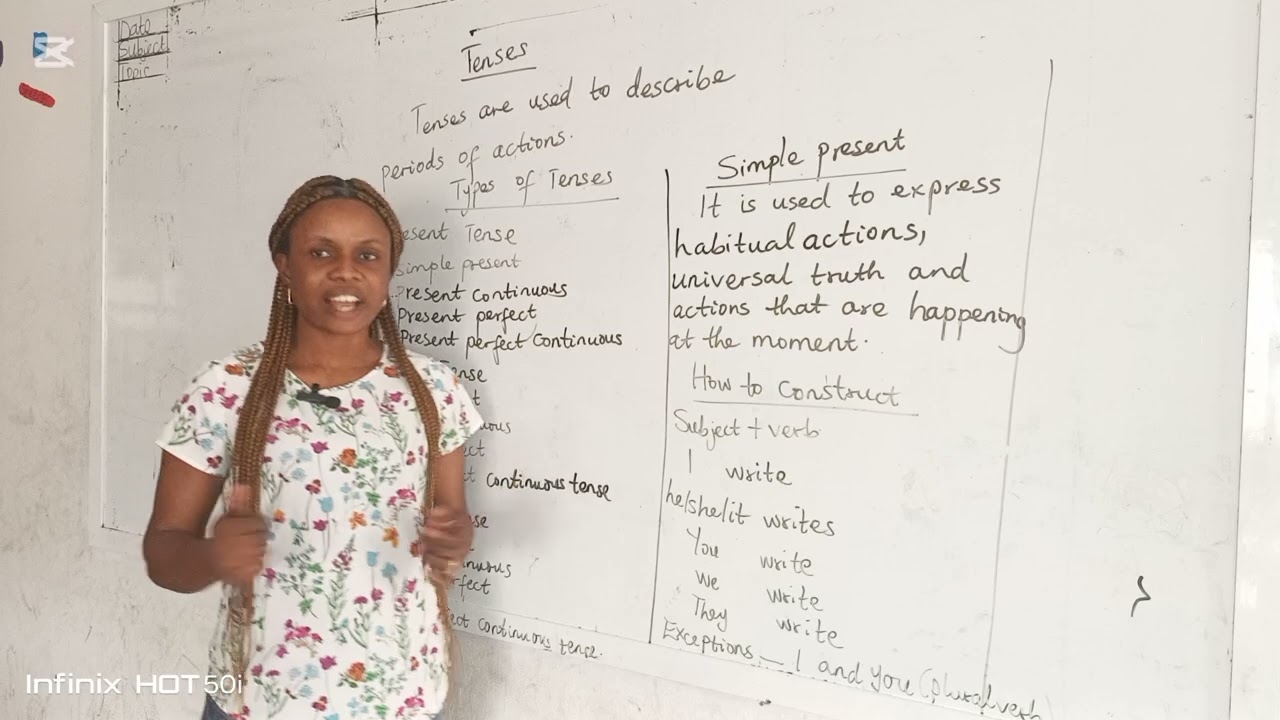 Date
Subject
Topic
Tenses
Tenses are used to describe
periods of actions.
Types of Tenses
esent Tense
simple present
Present continuous
Present perfect
Present perfect continuous
ense
t
uous
ect
t continuous tense
se
nuous
rfect
ect continuous tense.
Simple present
It is used to express
habitual actions,
universal truth and
actions that are happening
at the moment.
How to construct
Subject + verb
I write
he/she/it writes
You write
We write
They write
Exceptions - I and you (plural verb)
Infinix HOT 50i